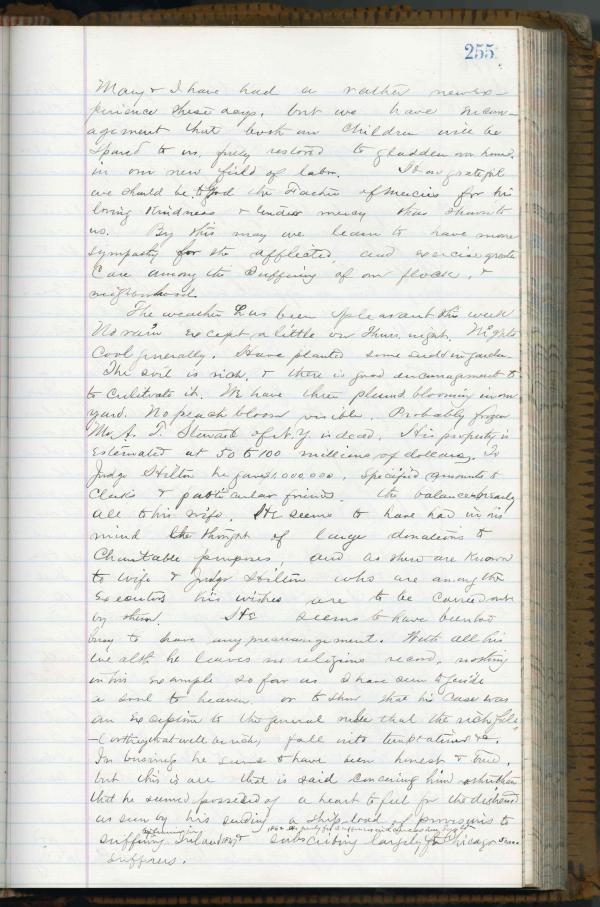 255
Mary & I have had a rather new ex-
perience these days, but we have encour-
agement that both our children will be
spared to us, fully restored to gladden our home
in our new field of labor. How grateful
we should be to God the Father of mercies for his
loving kindness & tender mercy thus shown to
us. By this may we learn to have more
sympathy for the afflicted, and exercise greater
care among the suffering of our flock, &
neighborhood.
The weather has been pleasant this week
No rain except a little on Thurs. night. Nights
cool generally. Have planted some seeds in garden
The soil is rich, & there is good encouragement to
to cultivate it. We have three plums blooming in our
yard. No peach bloom visible. Probably frozen
Mr. A. T. Steward of N.Y. is dead. His property is
estimated at 50 to 100 millions of dollars. To
Judge Hilton he gave $1,000,000. Specified amounts to
clerks & particular friends. The balance nearly
all to his wife. He seems to have had in his
mind the thought of large donations to
charitable purposes, and as these are known
to wife & Judge Hilton who are among the
executors his wishes are to be carried out
by them. He seems to have been too
busy to have any prearrangement. With all his
wealth he leaves no religious record, nothing
in his example so far as I have seen to guide
a soul to heaven, or to show that his case was
an exception to the general rule that the rich
- (or they that will be rich) fall into temptations &c.
In business he seems to have been honest & true,
but this is all that is said concerning him other than
that he seemed possessed of a heart to feel for the distressed
as seen by his sending a ship load of provisions to
suffering Ireland & subscribing largely for Chicago
sufferers.